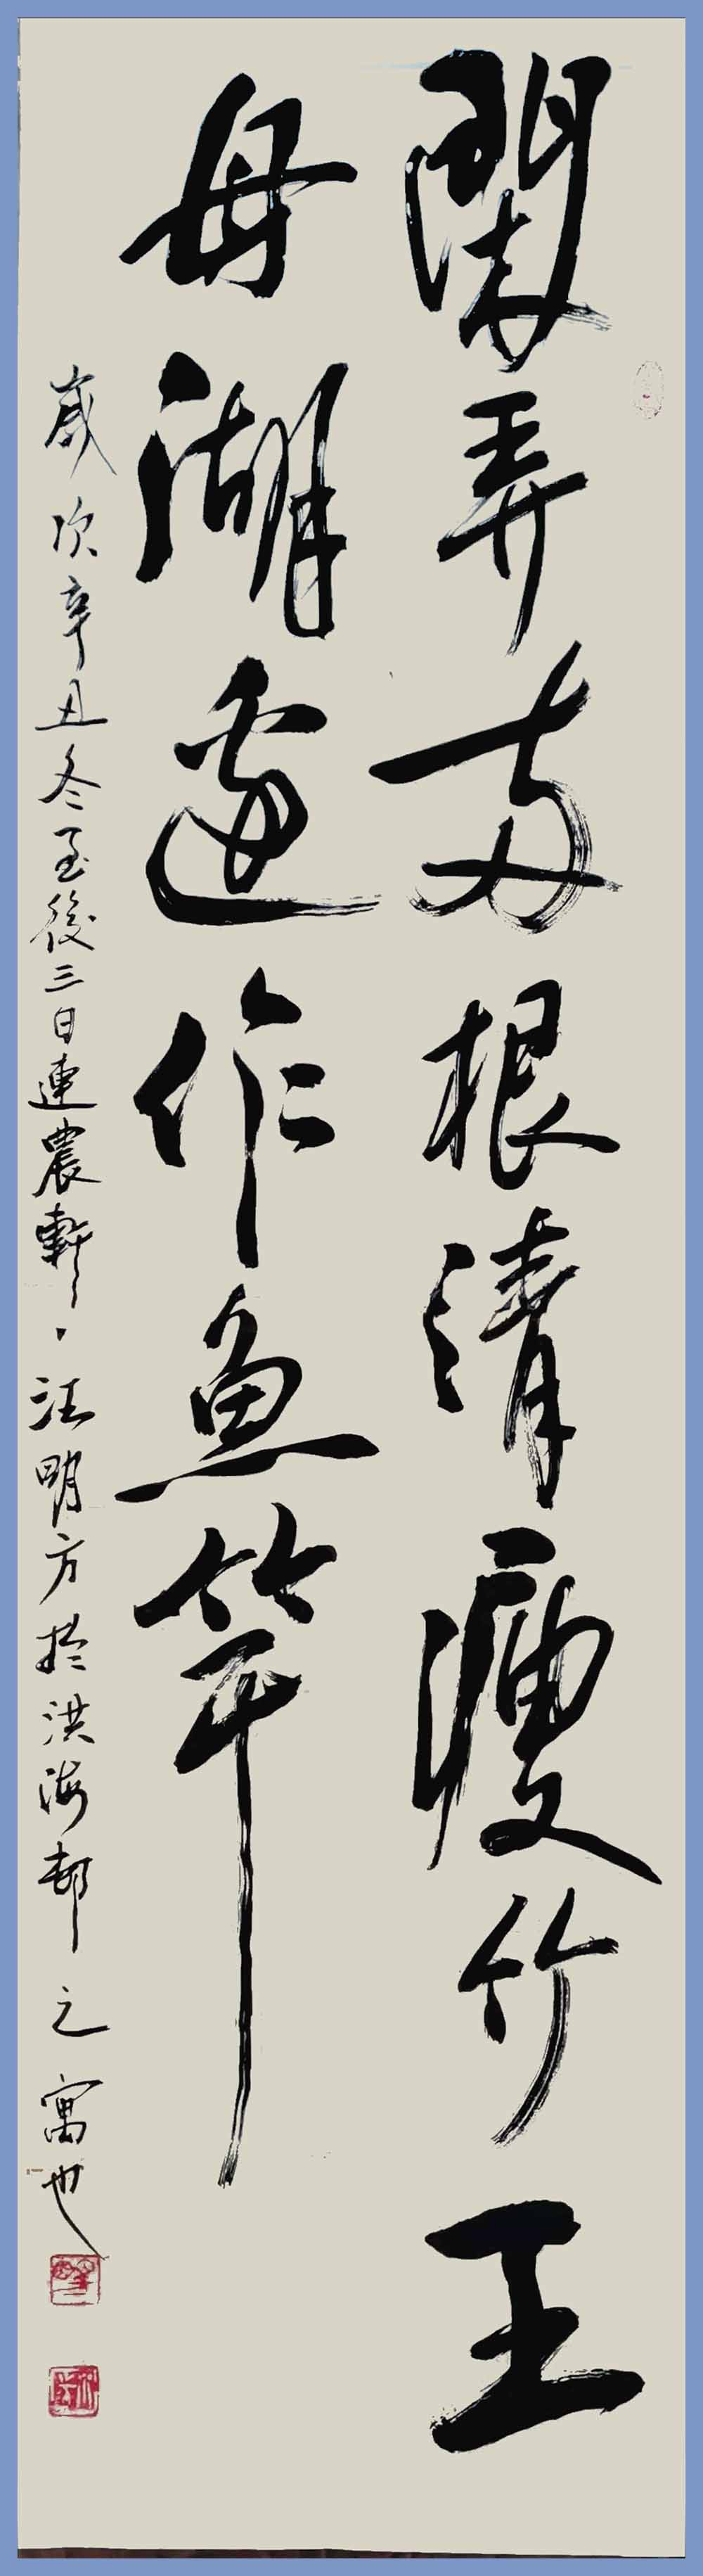 閑弄兩根清瘦竹王
母湖邊作魚竿
歲次辛丑冬至後三日連農軒汪明方於洪海邨之寓也